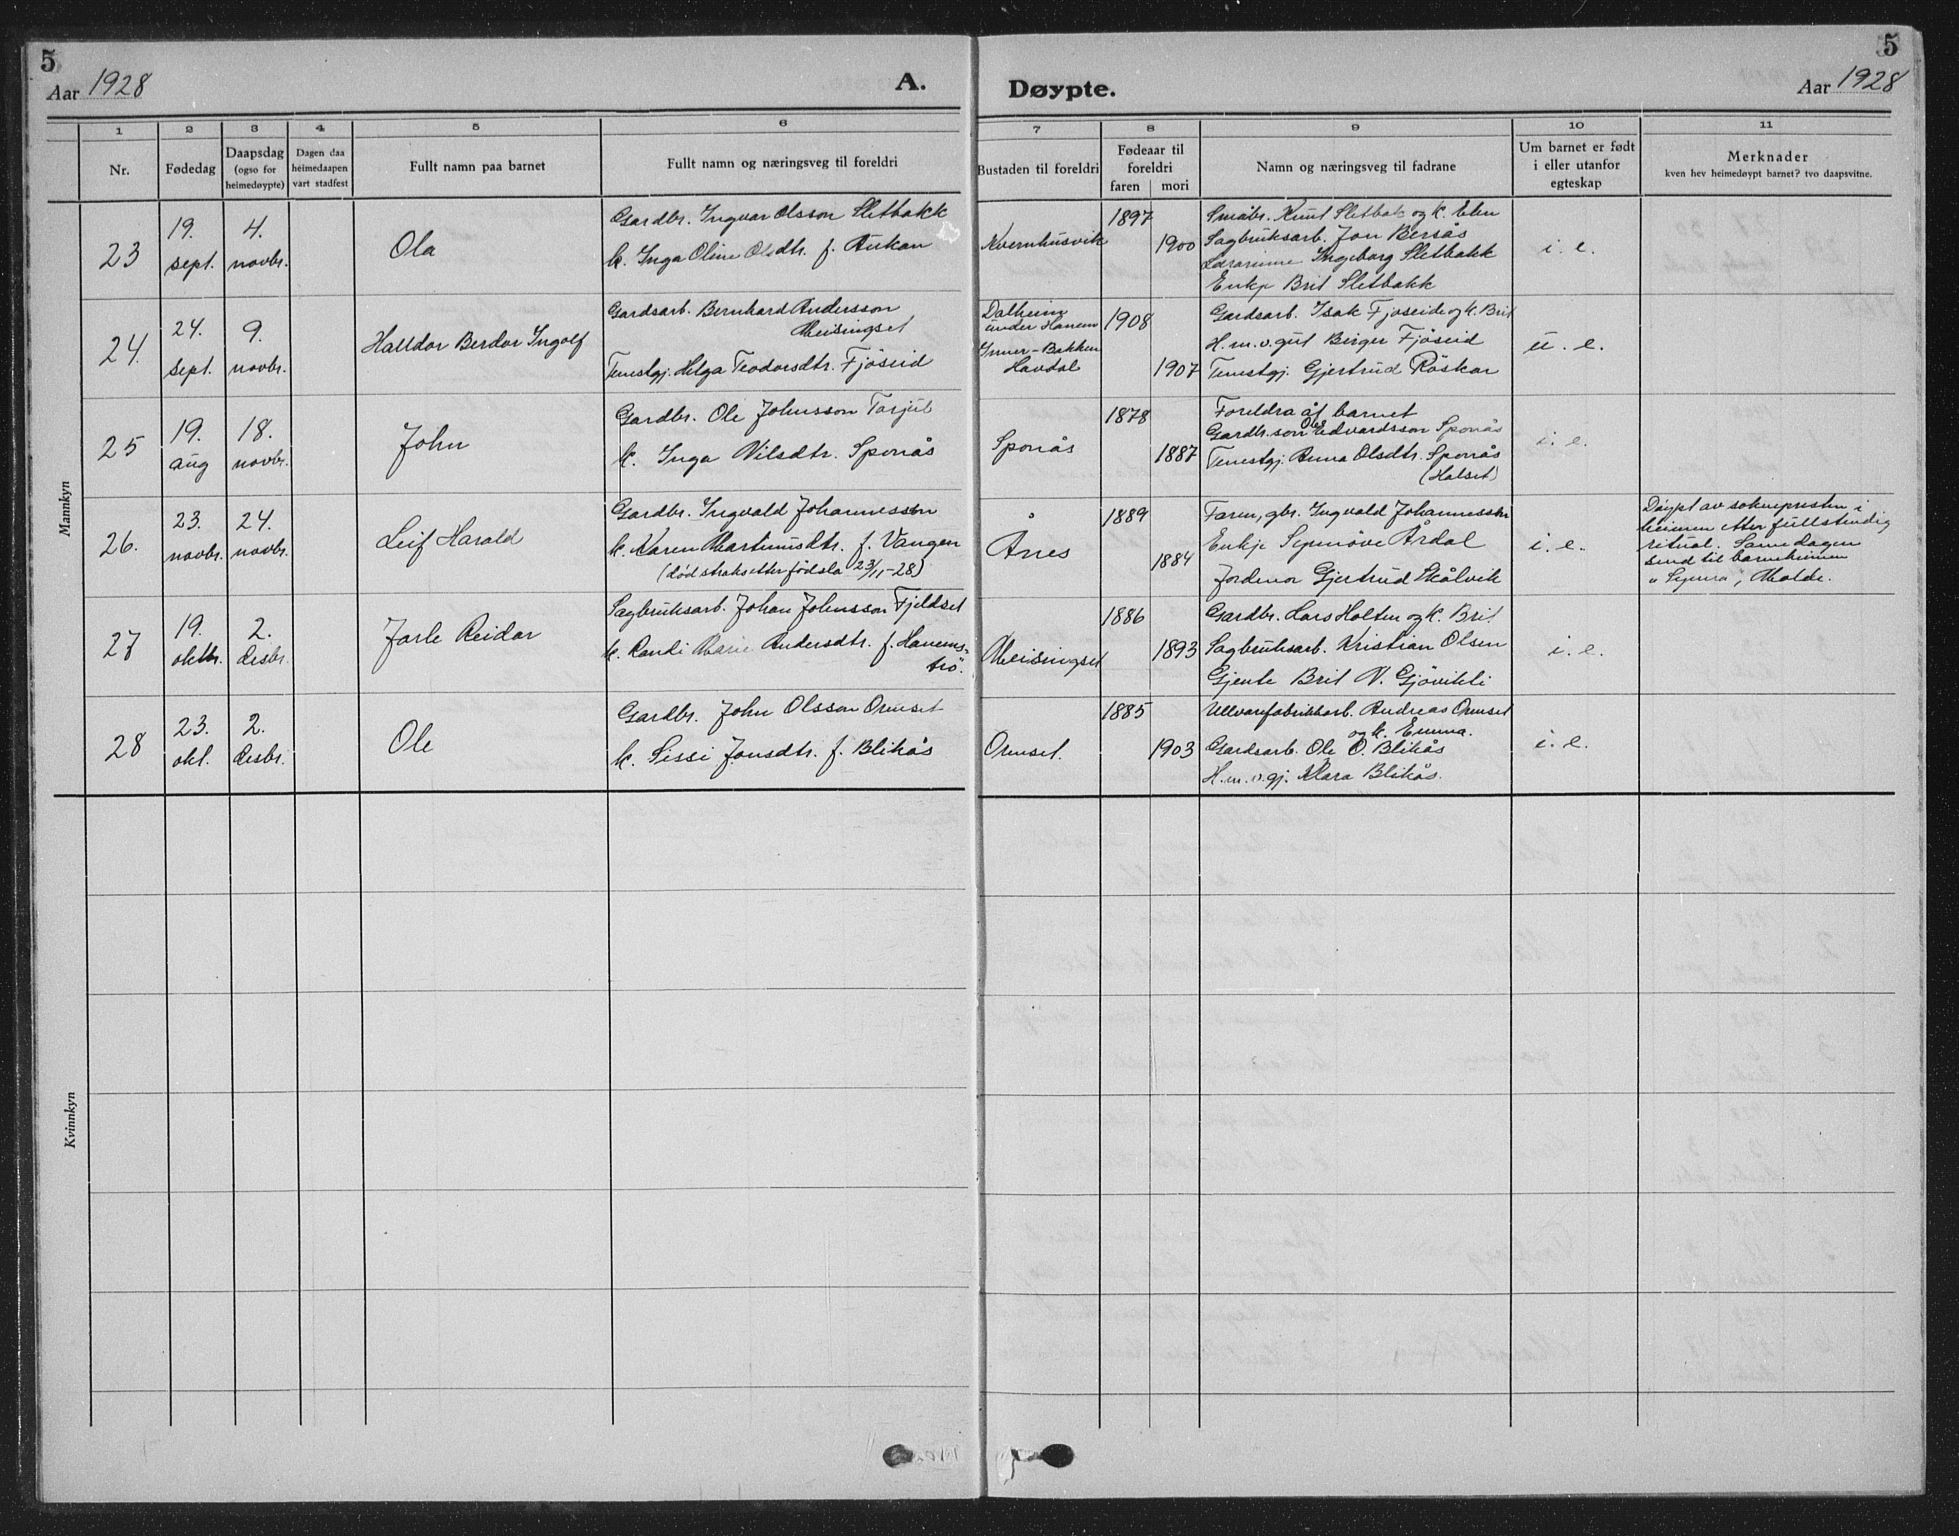 5
Aar 1928
A.
1 2 3 4 5 6
Nr.
Fødedag
Daapsdag
(ogso for
heimedøypte)
Dagen daa
heimedaapen
vart stadfest
Fullt namn paa barnet
Fullt namn og næringsveg til foreldri
Mannkyn
23
19.
sept.
4.
novbr.
Ola
Gardbr. Ingvar Olsson Sletbakk
k. Inga Oline Olsdtr. f. Aukan
24.
24.
sept.
9.
novbr.
Halldor Berdor Ingolf
Gardsarb. Bernhard Andersson
Meisingset
Tenestgj. Helga Teodorsdtr. Fjøseid
25
19.
aug
18.
novbr.
John
Gardbr. Ole Johnsson Torjul
k. Inga Nilsdtr. Sponås
26.
23.
novbr.
24.
novbr.
Leif Harald
Gardbr. Ingvald Johannesson
k. Karen Martinusdtr. f. Vangen
(död straks etter födsla 23/11-28)
27
19.
oktbr.
2.
desbr.
Jarle Reidar
Sagbruksarb. Johan Johnsson Fjeldset
k. Randi Marie Andersdtr. f. Hanems-
trö.
28
23.
okt.
2.
desbr.
Ole
Gardbr. John Olsson Ormset
k. Sissi Jonsdtr. f. Blikås
Kvinnkyn
5
Døypte.
Aar 1928
7 8 9 10 11
Bustaden til foreldri
Fødeaar til
foreldri
faren mori
Namn og næringsveg til fadrane
Um barnet er født
i eller utanfor
egteskap
Merknader
kven hev heimedøypt barnet? tvo daapsvitne.
Kvernhusvik
1897
1900
Småbr. Knut Sletbak og k. Elen
Sagbruksarb. Jon Bersås
Lærarinne Ingeborg Sletbakk
Enkje Brit Sletbakk
i. e.
Dalheim
under Hanem
Inner-Bakken
Havdal
1908
1907
Gardsarb. Isak Fjøseide og k. Brit
H.m.v. gut Birger Fjöseid
Tenestgj. Gjertrud Röskar
u. e.
Sponås
1878
1887
Foreldra åt barnet
Gardbr.son Ole Edvardsson Sponås
Tenestgj. Anna Olsdtr. Sponås
(Halset)
i. e.
Ånes
1889
1884
Faren, gbr. Ingvald Johannesson
Enkje Synnöve Årdal
Jordmor Gjertrud Skålvik
i. e.
Döypt av soknepresten i
heimen etter fullstendig
ritual. Same dagen
send til barneheimen
Molde.
Meisingset
1886
1893
Gardbr. Lars Holten og k. Brit
Sagbruksarb. Kristian Olsen
Gjente Brit N. Gjövikli
i. e.
Ormset.
1885
1903
Ullvarefabrikkarb. Andreas Ormset
og k. Emma.
Gardsarb. Ole O. Blikås
H.m.v.gj. Klara Blikås.
i. e.